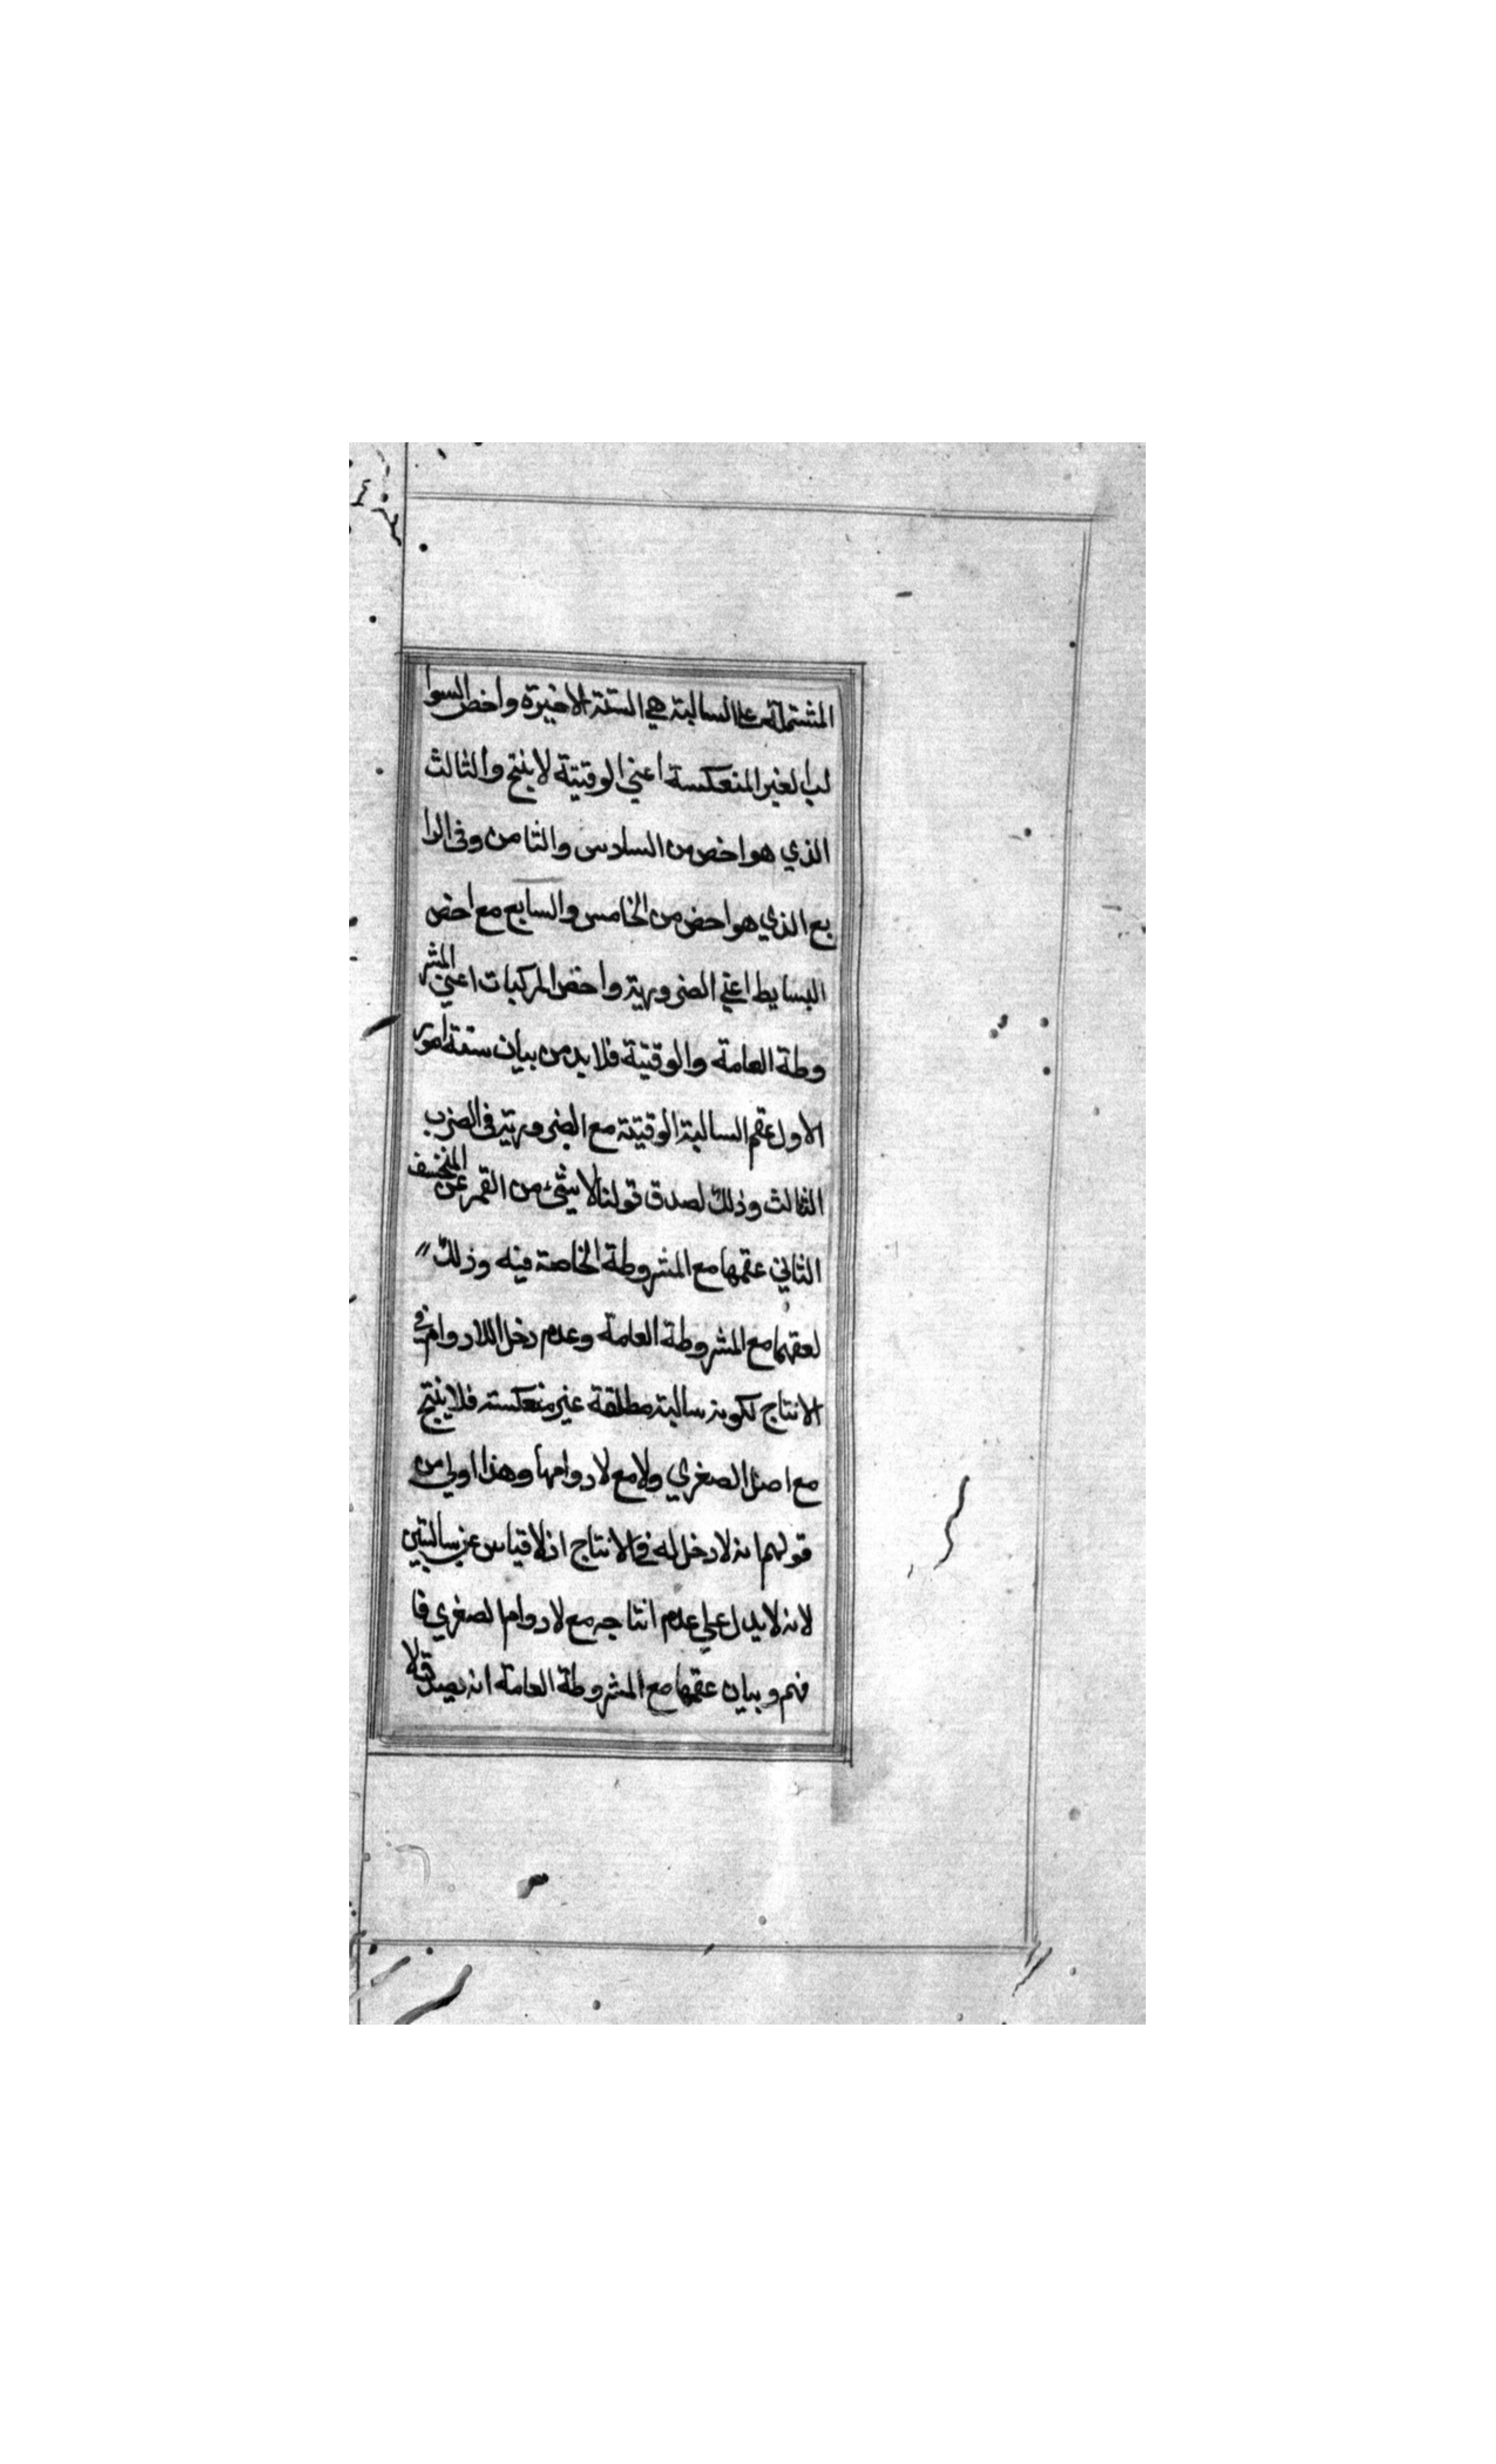 المشتملة على السالبة هي الستة الاخيرة واخص السوا
لب الغير المنعكسة اعني الوقتية لا ينتج والثالث
الذي هو اخص من السادس والثامن وفي الرا
بع الذي هو اخص من الخامس والسابع مع اخص
البسايط اعني الضرورية واخص المركبات اعني المشر
وطة العامة والوقتية فلا بد من بيان ستة امور
الاول عقم السالبة الوقتية مع الضرورية في الضرب
الثالث وذلك لصدق قولنا لا شئ من القمر عن المنخسف
الثاني عقمها مع المشروطة الخاصة فيه وذلك
لعقمها مع المشروطة العامة وعدم دخل اللادوام في
الانتاج لكونه سالبة مطلقة غير منعكسة فلا ينتج
مع اصل الصغري ولا مع لا دوامها وهذا اولي من
قولهم انه لا دخل له في الانتاج اذ لا قياس عن سالبتين
لانه لا يدل علي عدم انتاجه مع لا دوام الصغري فا
فهم وبيان عقمها مع المشروطة العامة انه يصدق لا